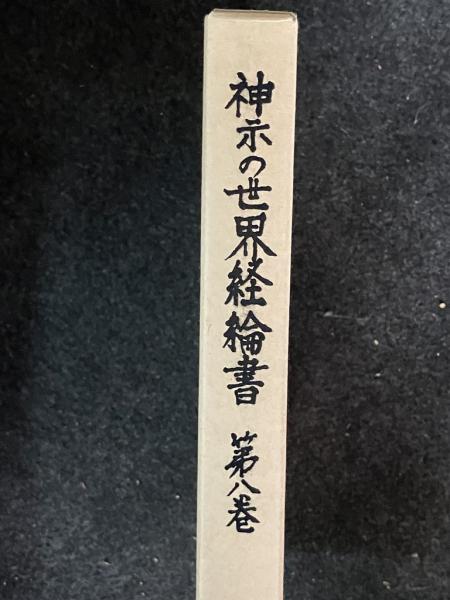 神示の世界経綸書 第八巻